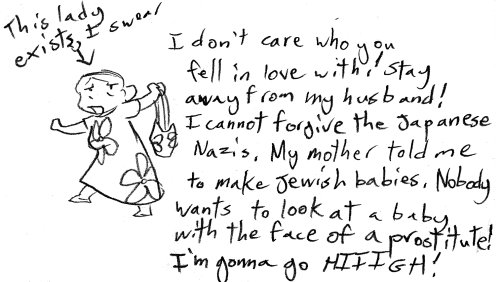 This lady
exists, I swear
I don't care who you
fell in love with! Stay
away from my husband!
I cannot forgive the Japanese
Nazis. My mother told me
to make Jewish babies. Nobody
wants to look at a baby
with the face of a prostitute!
I'm gonna go